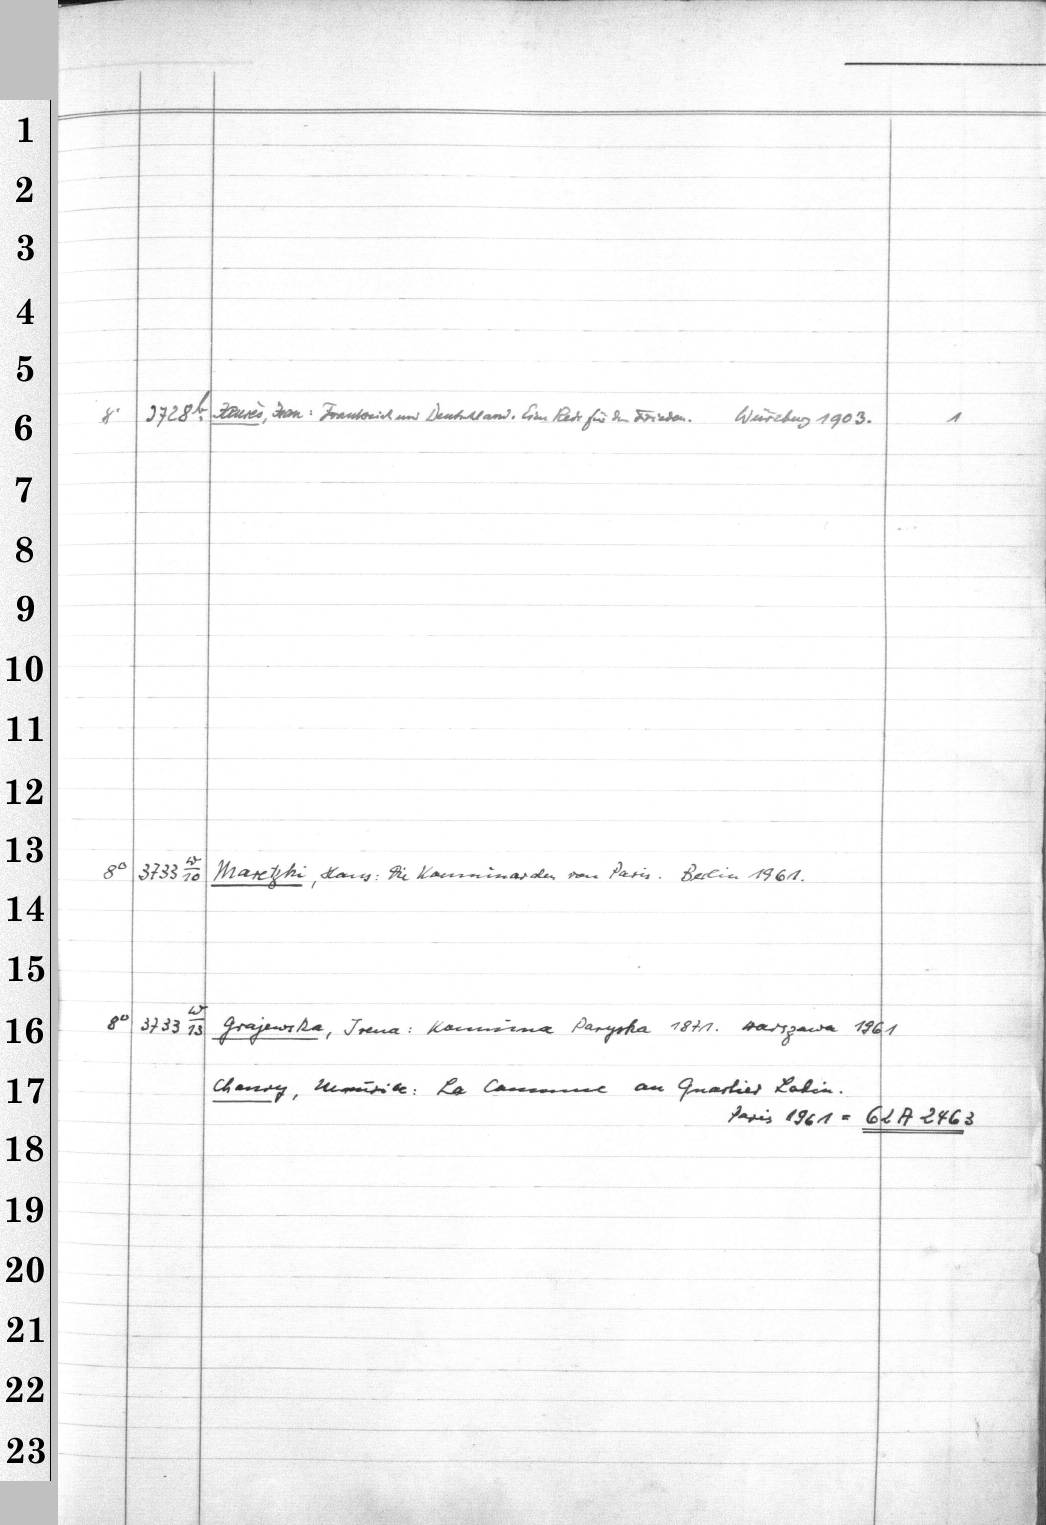 1
2
3
4
5
6
8° 3728 b. Jaurès, Jean: Frankreich und Deutschland. Eine Rede für den Frieden. Würzburg 1903. 1
7
8
9
10
11
12
13
8° 3733 w/10 Maretzki, Hans: Die Kommunarden von Paris. Berlin 1961.
14
15
16
8° 3733 w/13 Grajewska, Irena: Komuna Paryska 1871. Warszawa 1961
17
Chaury, Maurice: La Commune au Quartier Latin.
Paris 1961 = 62 A 2463
18
19
20
21
22
23